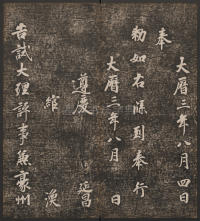 大曆三年八月四日
奉
勅如右牒到奉行
大曆三年八月　日
延昌
遵慶
綰　渙
告試大理評事兼豪州